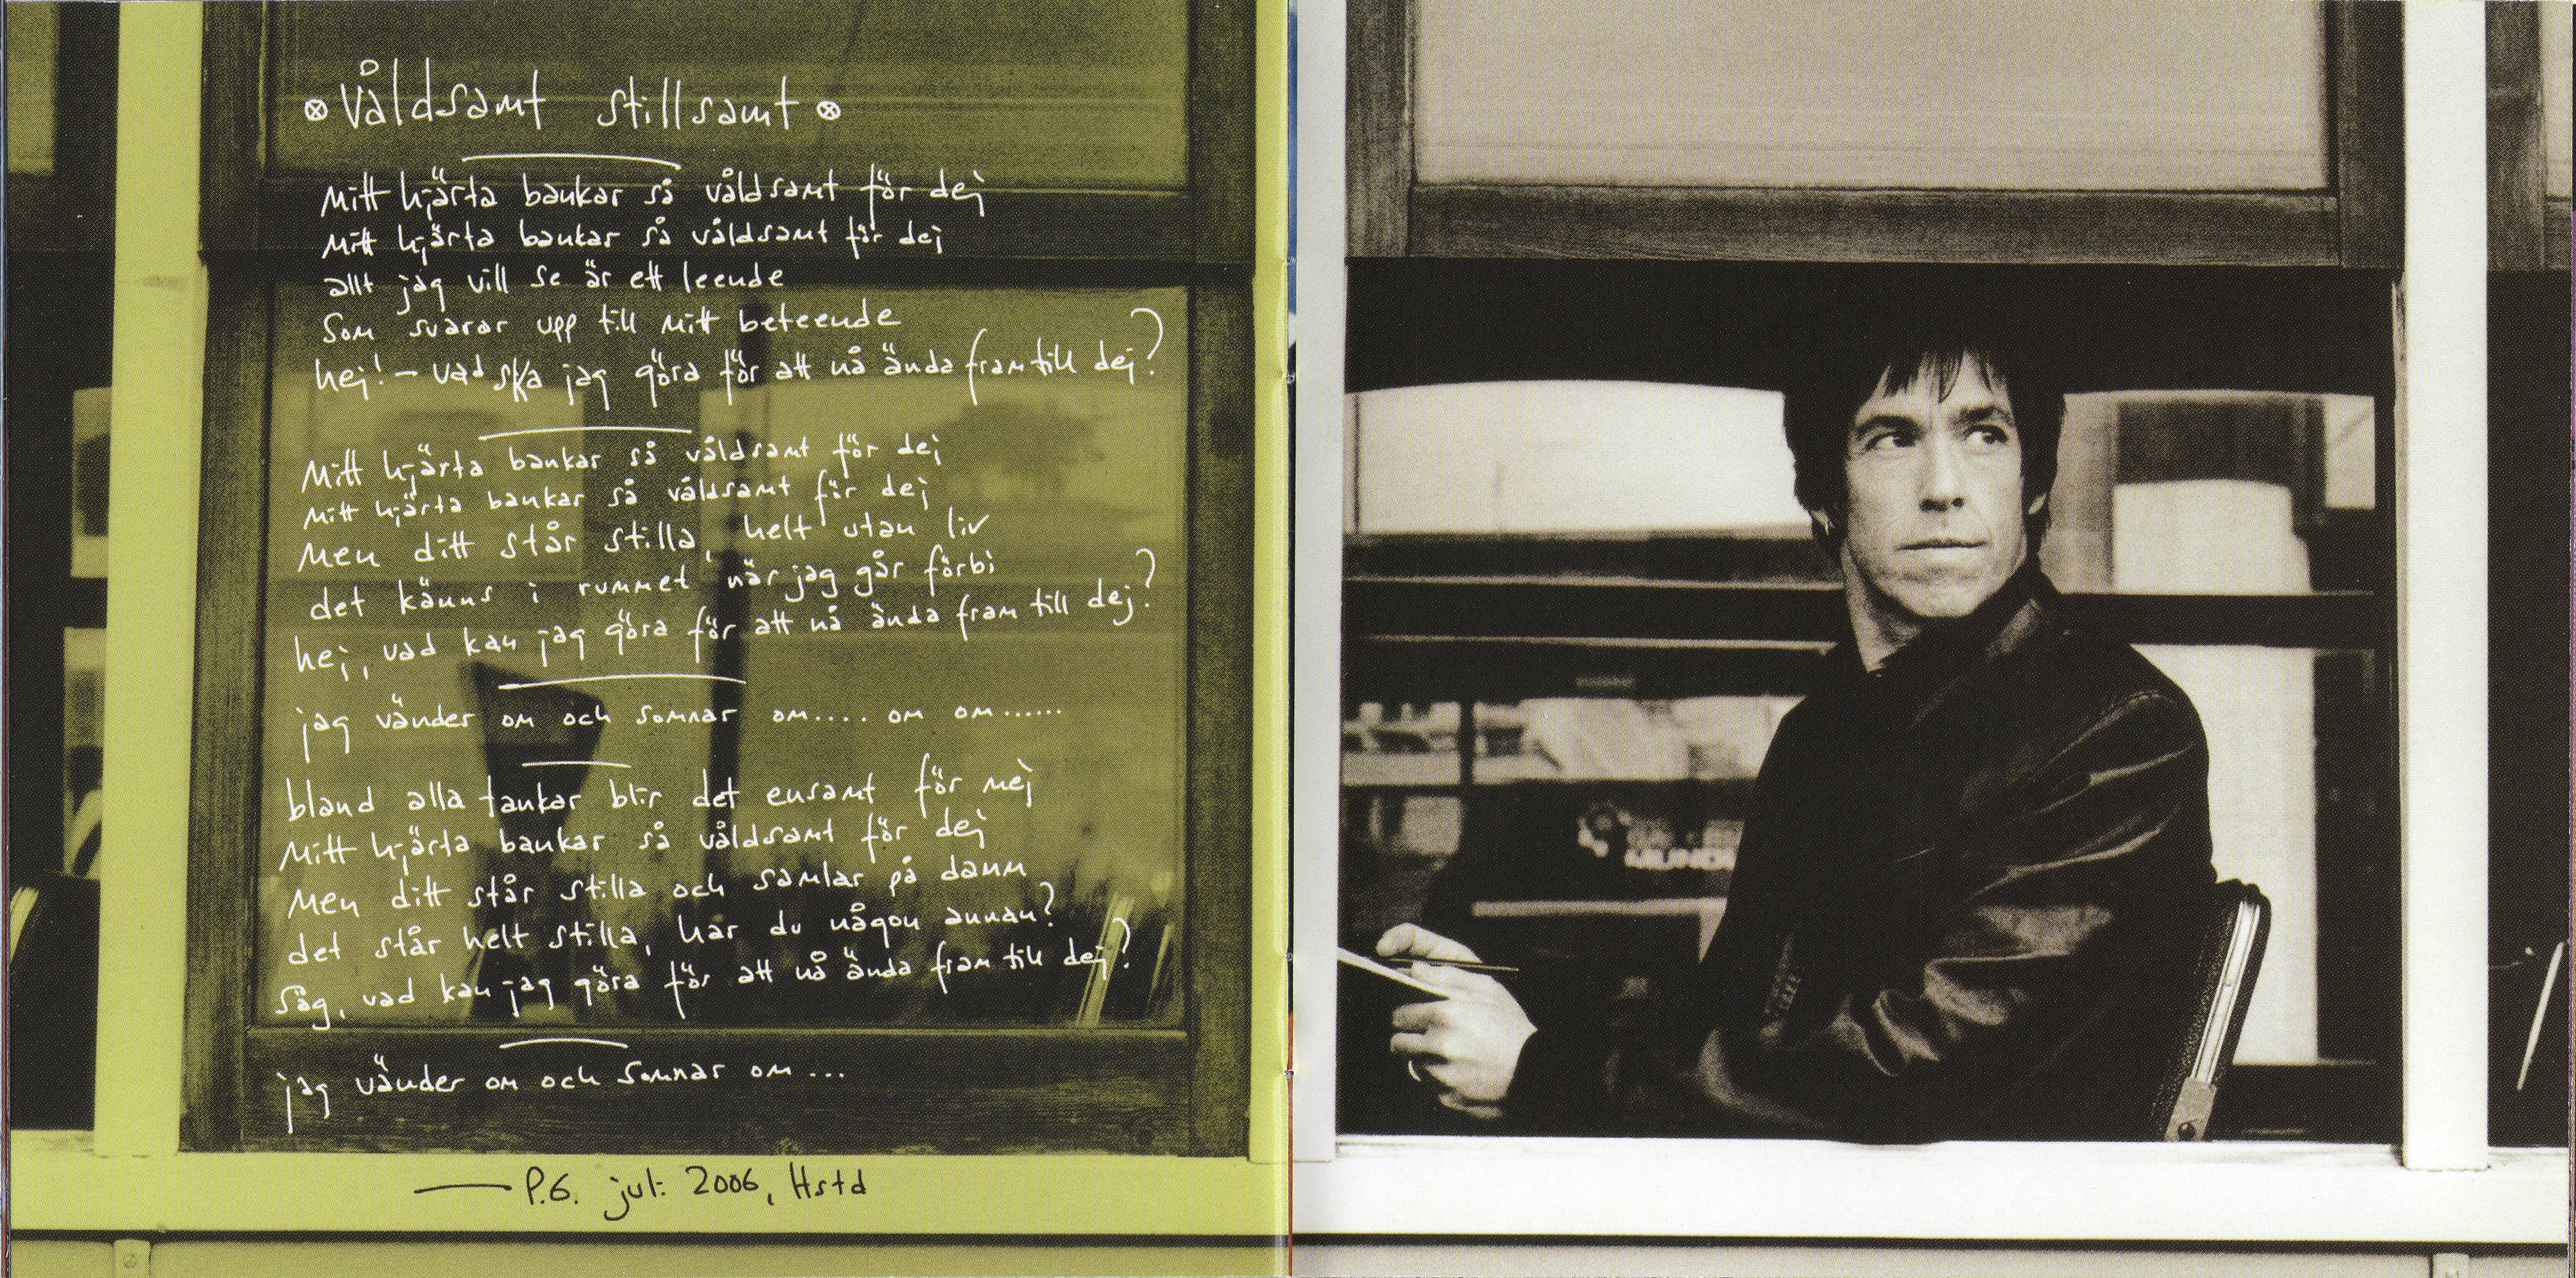 Våldsamt stillsamt
Mitt hjärta bankar så våldsamt för dej
Mitt hjärta bankar så våldsamt för dej
allt jag vill se är ett leende
Som svarar upp till mitt beteende
hej! – vad ska jag göra för att nå ända fram till dej?
Mitt hjärta bankar så våldsamt för dej
Mitt hjärta bankar så våldsamt för dej
Men ditt står stilla, helt utan liv
det känns i rummet när jag går förbi
hej, vad kan jag göra för att nå ända fram till dej?
jag vänder om och somnar om.... om om......
bland alla tankar blir det ensamt för mej
Mitt hjärta bankar så våldsamt för dej
Men ditt står stilla och samlar på damm
det står helt stilla, har du någon annan?
Säg, vad kan jag göra för att nå ända fram till dej?
jag vänder om och somnar om...
— P.G. juli 2006, Hstd